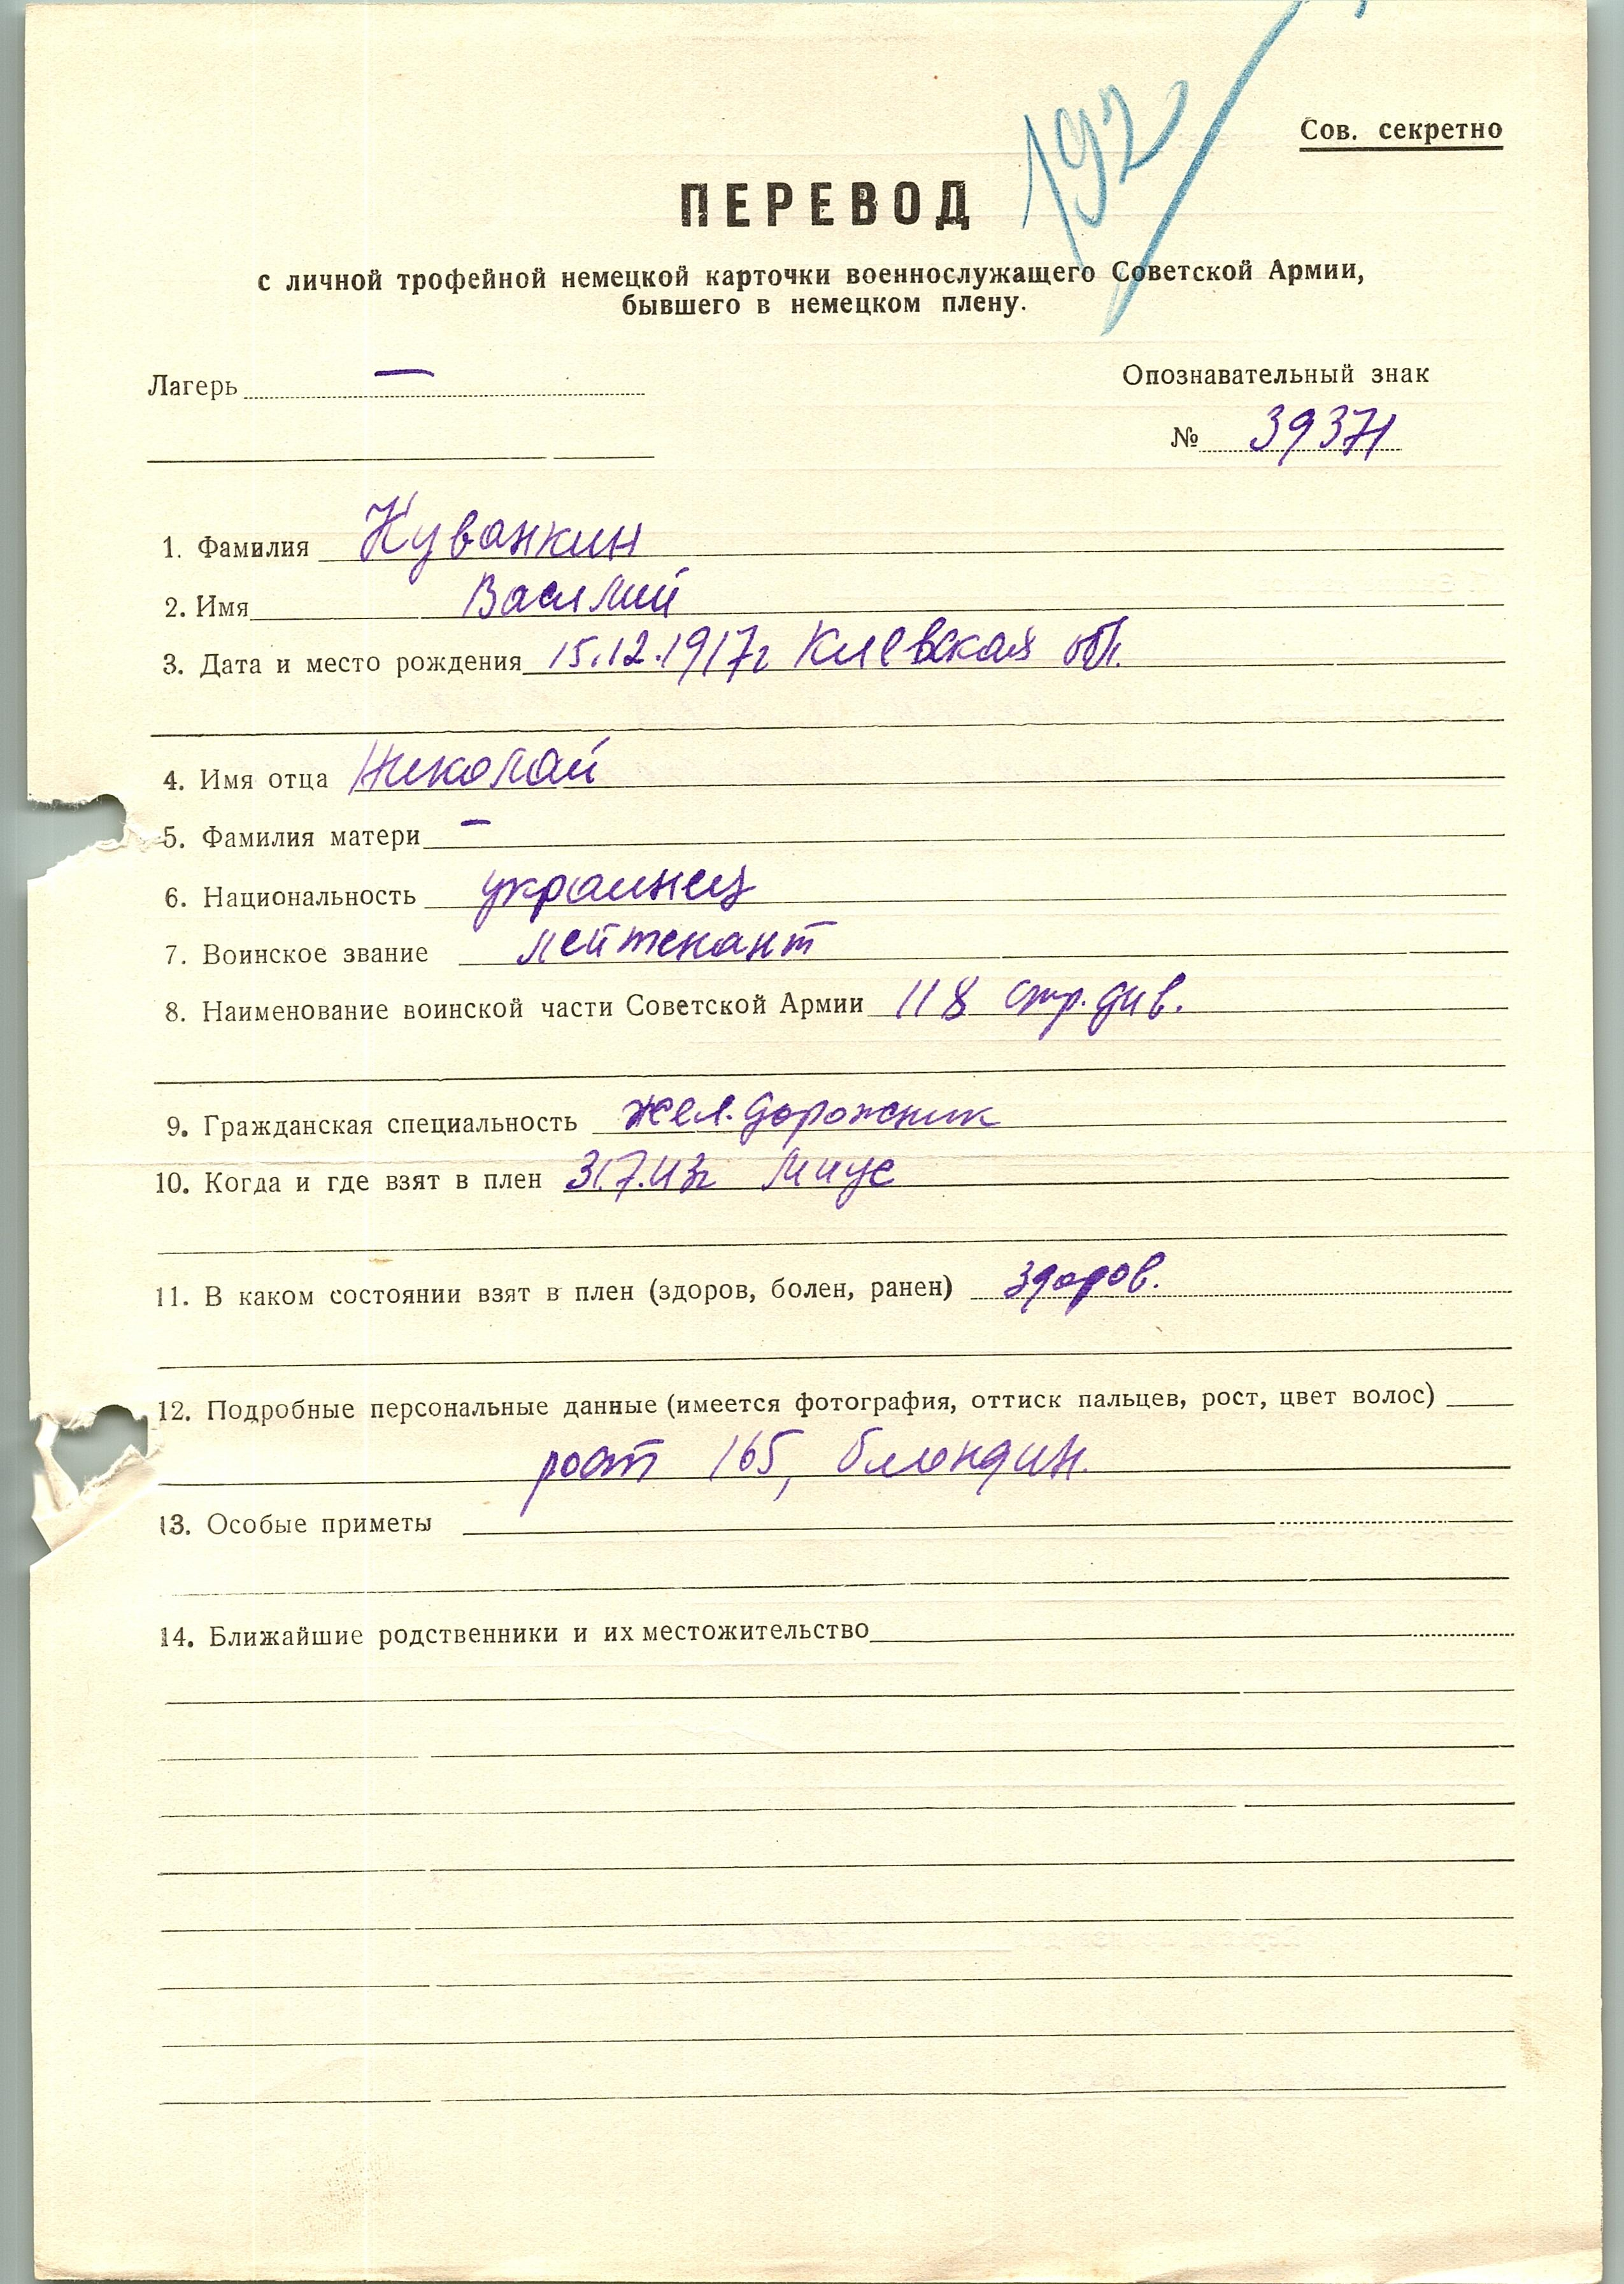 192
Сов. секретно
ПЕРЕВОД
с личной трофейной немецкой карточки военнослужащего Советской Армии,
бывшего в немецком плену.
Лагерь —
Опознавательный знак
№ 39371
1. Фамилия Куванкин
2. Имя Василий
3. Дата и место рождения 15.12.1917г Киевская обл.
4. Имя отца Николай
5. Фамилия матери —
6. Национальность украинец
7. Воинское звание лейтенант
8. Наименование воинской части Советской Армии 118 стр. див.
9. Гражданская специальность жел. дорожник
10. Когда и где взят в плен 31.7.43г Миус
11. В каком состоянии взят в плен (здоров, болен, ранен) здоров.
12. Подробные персональные данные (имеется фотография, оттиск пальцев, рост, цвет волос)
рост 165, блондин.
13. Особые приметы
14. Ближайшие родственники и их местожительство